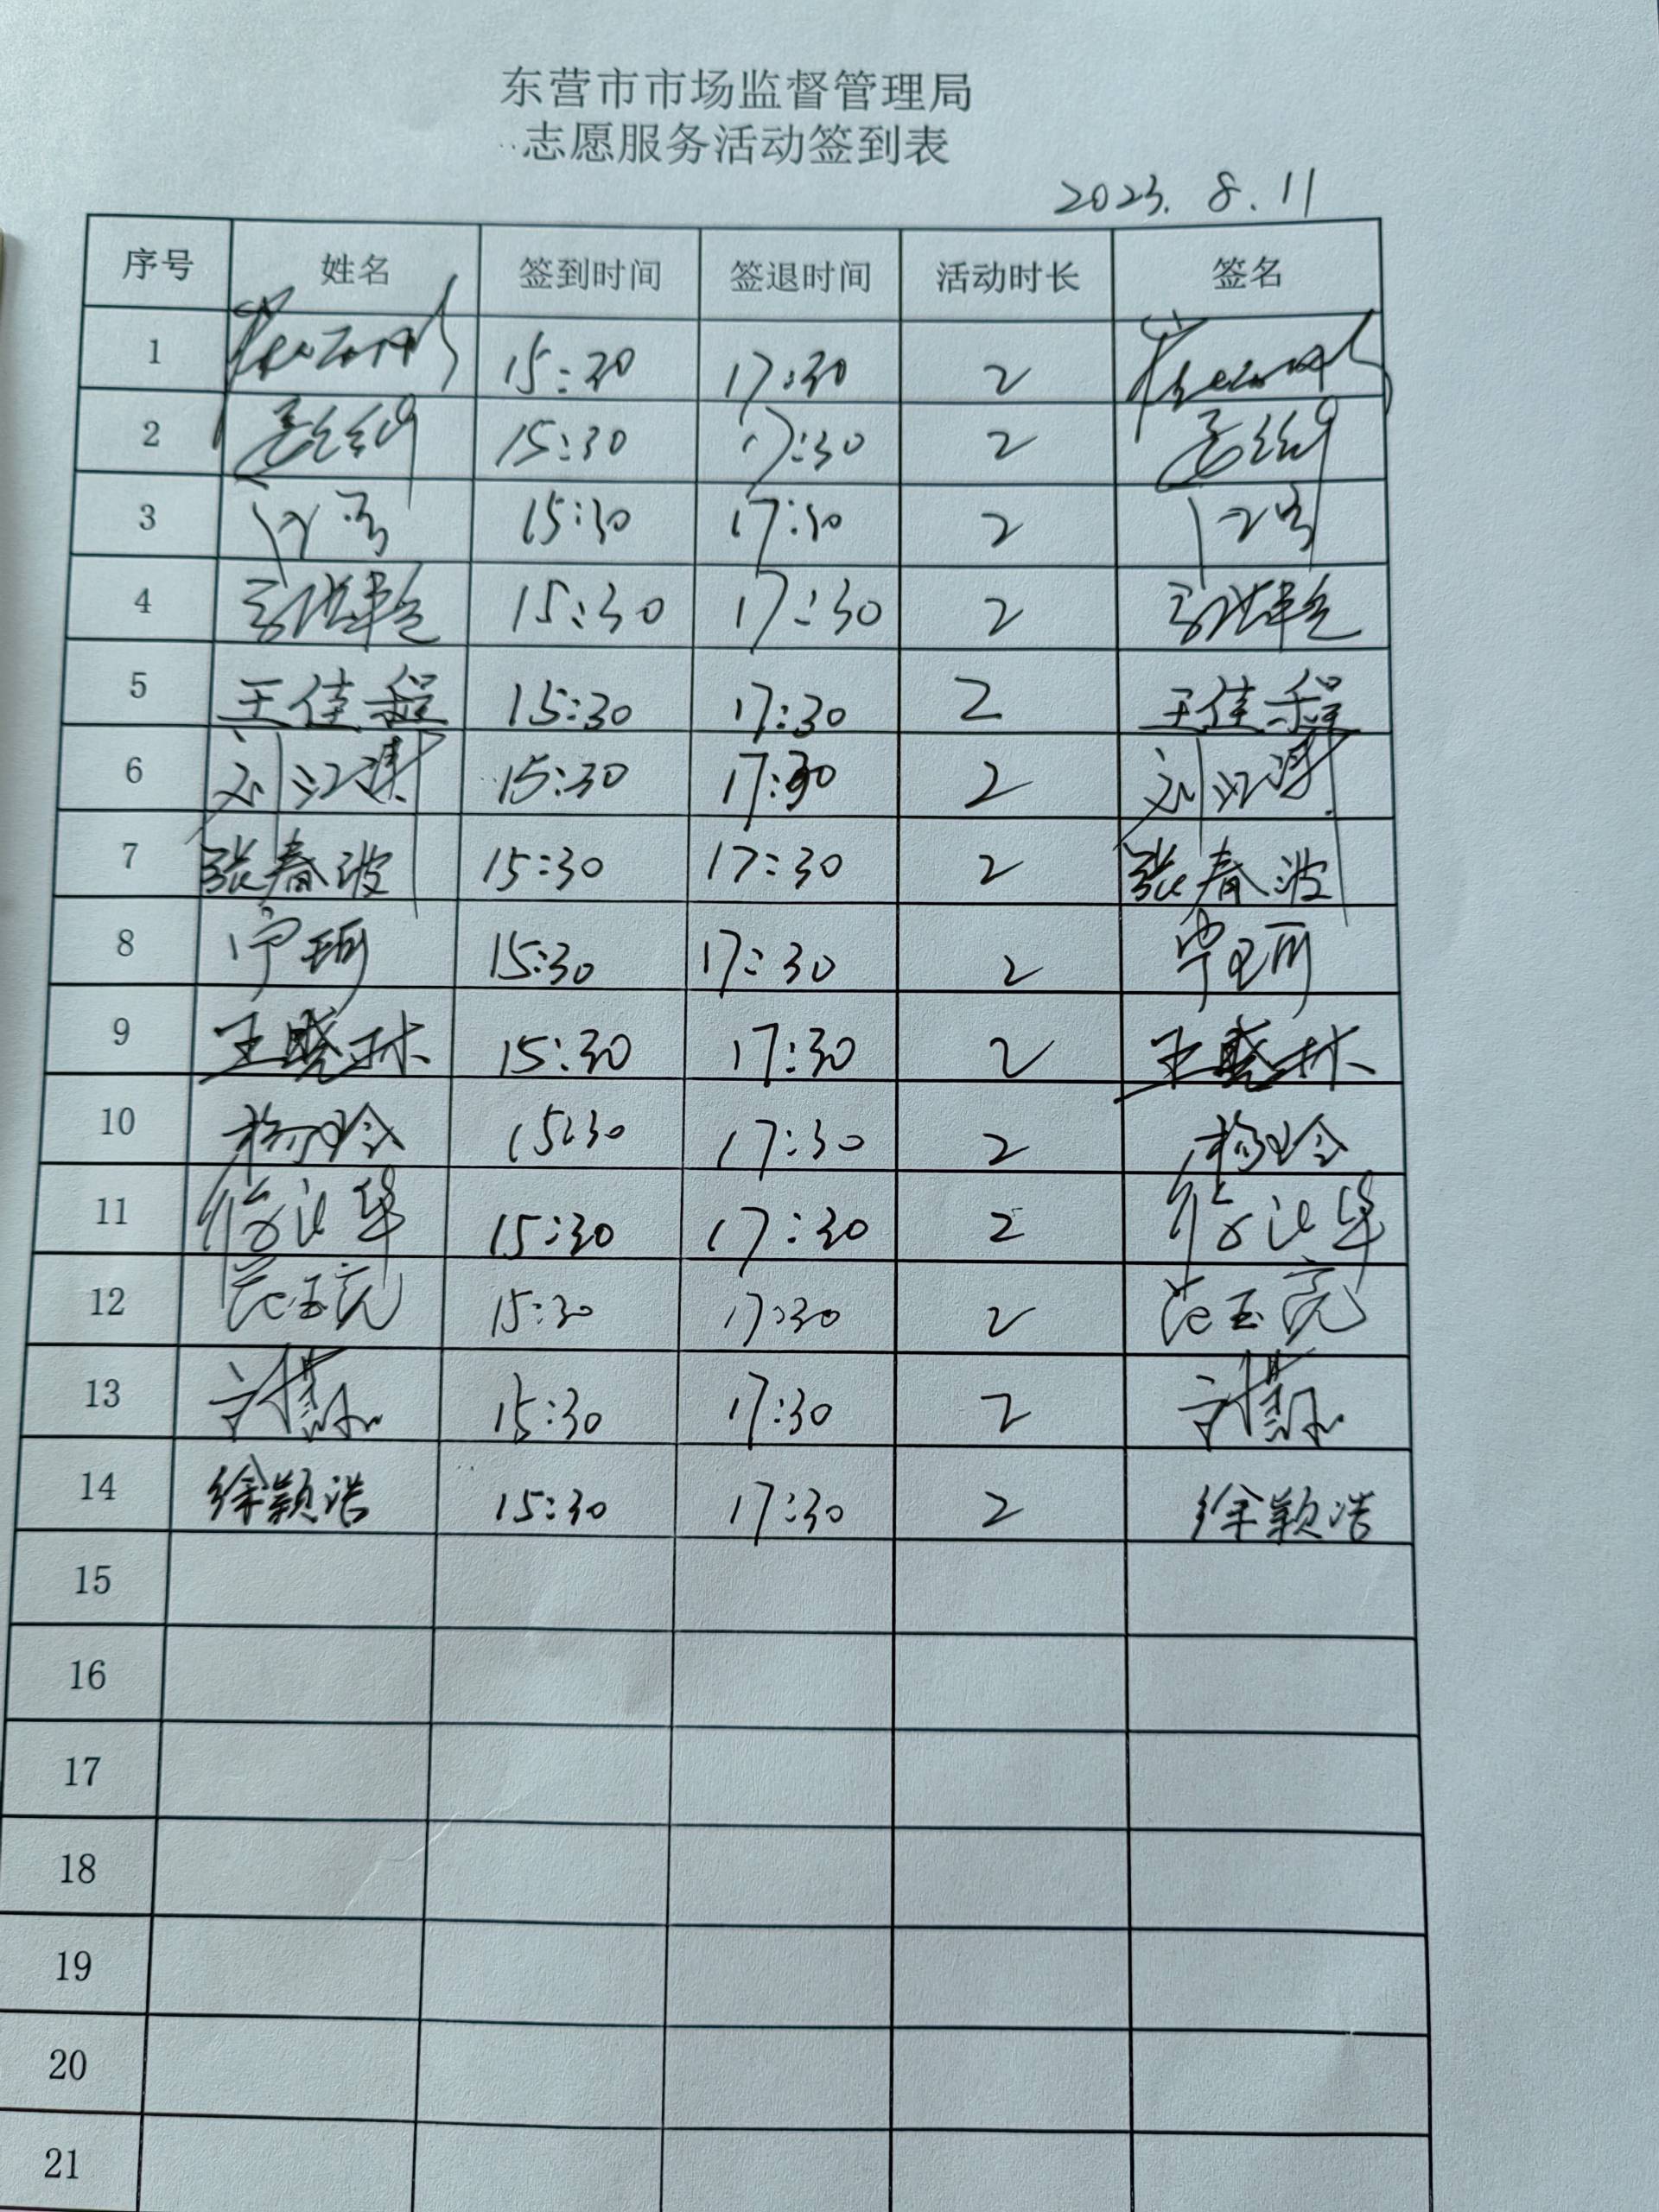 东营市市场监督管理局
志愿服务活动签到表
2023.8.11
序号 姓名 签到时间 签退时间 活动时长 签名
1 15:30 17:30 2
2 15:30 17:30 2
3 15:30 17:30 2
4 15:30 17:30 2
5 王佳程 15:30 17:30 2 王佳程
6 刘江琪 15:30 17:30 2 刘江琪
7 张春波 15:30 17:30 2 张春波
8 宁珂 15:30 17:30 2 宁珂
9 王晓琳 15:30 17:30 2 王晓琳
10 杨玲 15:30 17:30 2 杨玲
11 15:30 17:30 2
12 范玉亮 15:30 17:30 2 范玉亮
13 15:30 17:30 2
14 徐颖浩 15:30 17:30 2 徐颖浩
15
16
17
18
19
20
21